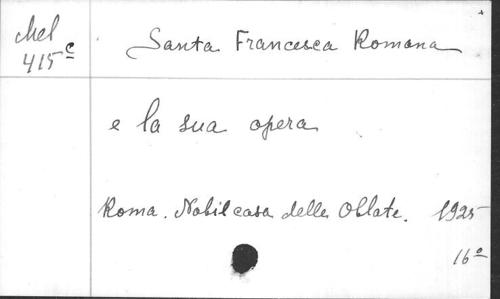 Mel
415 c
Santa Francesca Romana
e la sua opera
Roma. Nobil casa delle Oblate. 1925
16º